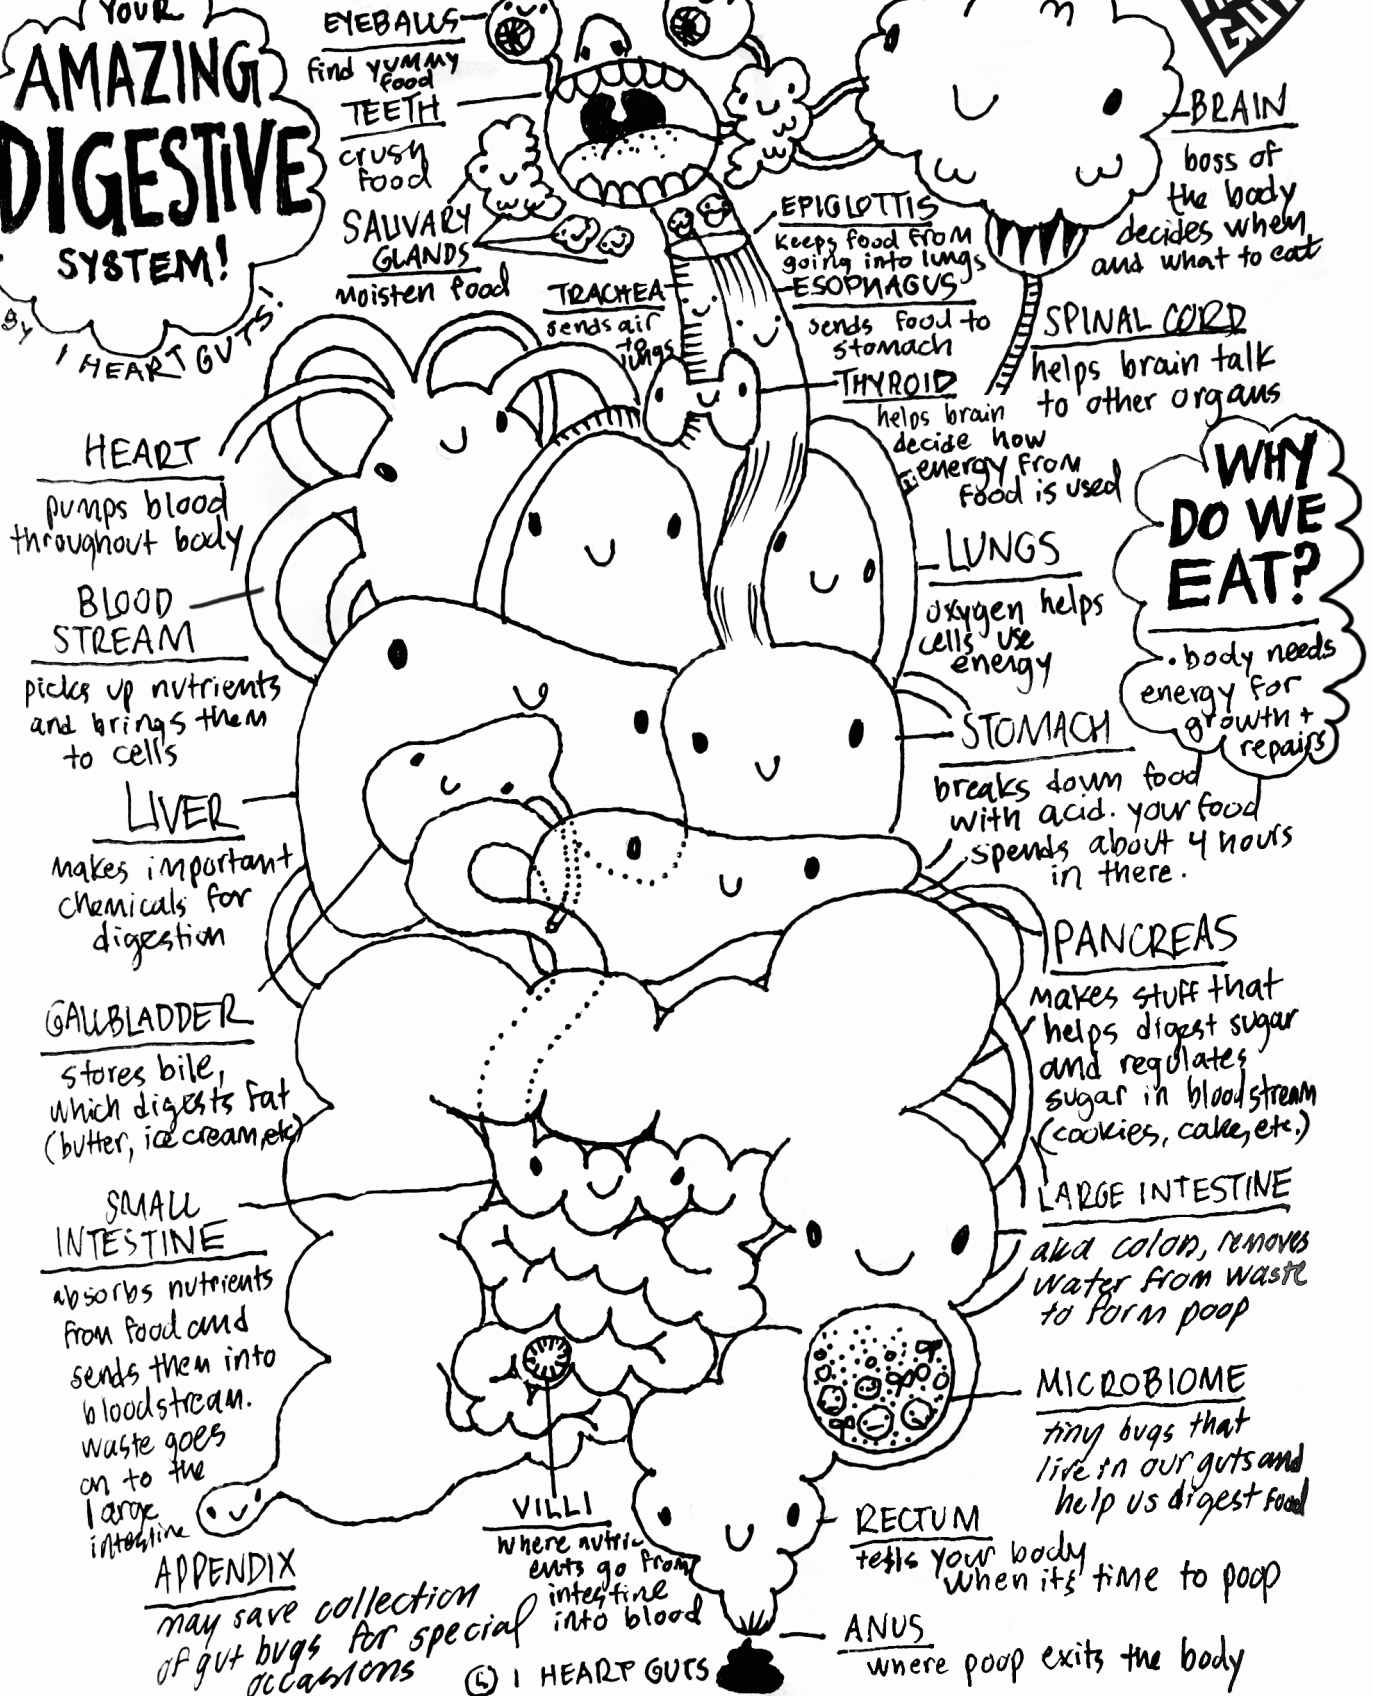 YOUR
AMAZING
DIGESTIVE
SYSTEM!
By I HEART GUTS!
EYEBALLS
find yummy
food
TEETH
crush
food
SALIVARY
GLANDS
moisten food
TRACHEA
sends air
to
lungs
EPIGLOTTIS
keeps food from
going into lungs
ESOPHAGUS
sends food to
stomach
THYROID
helps brain
decide how
energy from
food is used
BRAIN
boss of
the body
decides when
and what to eat
SPINAL CORD
helps brain talk
to other organs
WHY
DO WE
EAT?
• body needs
energy for
growth +
repairs
HEART
pumps blood
throughout body
BLOOD
STREAM
picks up nutrients
and brings them
to cells
LIVER
makes important
chemicals for
digestion
GALLBLADDER
stores bile,
which digests fat
(butter, ice cream, etc)
SMALL
INTESTINE
absorbs nutrients
from food and
sends them into
bloodstream.
waste goes
on to the
large
intestine
APPENDIX
may save collection
of gut bugs for special
occasions
LUNGS
oxygen helps
cells use
energy
STOMACH
breaks down food
with acid. your food
spends about 4 hours
in there.
PANCREAS
makes stuff that
helps digest sugar
and regulates
sugar in bloodstream
(cookies, cake, etc.)
LARGE INTESTINE
aka colon, removes
water from waste
to form poop
MICROBIOME
tiny bugs that
live in our guts and
help us digest food
VILLI
where nutri-
ents go from
intestine
into blood
RECTUM
tells your body
when it's time to poop
ANUS
where poop exits the body
I HEART GUTS